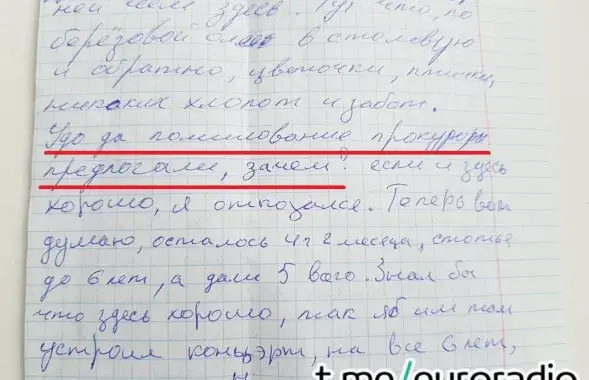 ней чем здесь. Тут что, по
берёзовой аллее в столовую
и обратно, цветочки, птички,
никаких хлопот и забот.
Удо да помилование прокуроры
предлогали, зачем? если и здесь
хорошо, я отказался. Теперь вот
думаю, осталось 4г 2 месеца, статья
до 6 лет, а дали 5 всего. Знал бы
что здесь хорошо, так яб им там
устроил концэрт, на все 6 лет,
t.me/euroradio